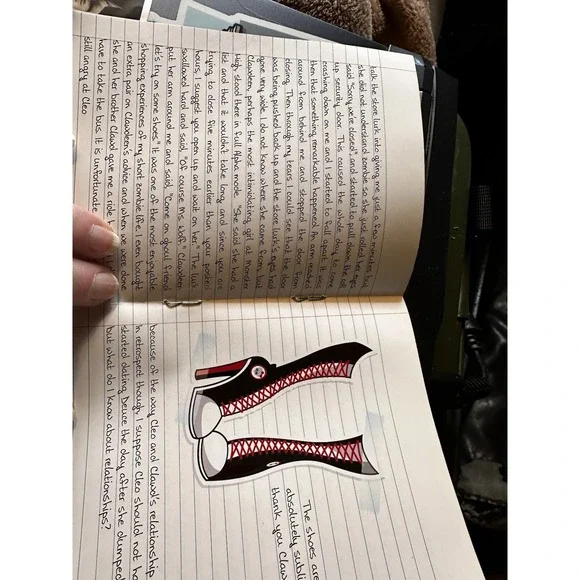 talk the store lurk into giving me just a few minutes but
she did not understand zombie so she just rolled her eyes
said "Sorry we're closed" and started to pull down the roll
up security door. This caused the whole day to come
crashing down on me and I started to fall apart. It was
then that something remarkable happened. An arm reached
around from behind me and stopped the door from
closing. Then through my tears I could see that the door
was being pushed back up and the store lurk's eyes had
gone very wide. I do not know where she came from, but
Clawdeen, perhaps the most intimidating girl at Monster
High stood there in full Alpha mode. "She said she had a
list and that it wouldn't take long and since you are
trying to close five minutes earlier than your posted
hours, I suggest you open up and wait on her." The lurk
swallowed hard and said "Of course Ms. Wolf." Clawdeen
put her arm around me and said, "Come on ghoul friend
let's try on some shoes." It was one of the most enjoyable
shopping experiences of my short zombie life. I even bought
an extra pair on Clawdeen's advice and when we were done
she and her brother Clawd gave me a ride
have to take the bus. It is unfortunate
still angry at Cleo
The shoes are
absolutely subli
thank you Claw
because of the way Cleo and Clawd's relationship
In retrospect though, I suppose Cleo should not ha
started dating Deuce the day after she dumped
but what do I know about relationships?